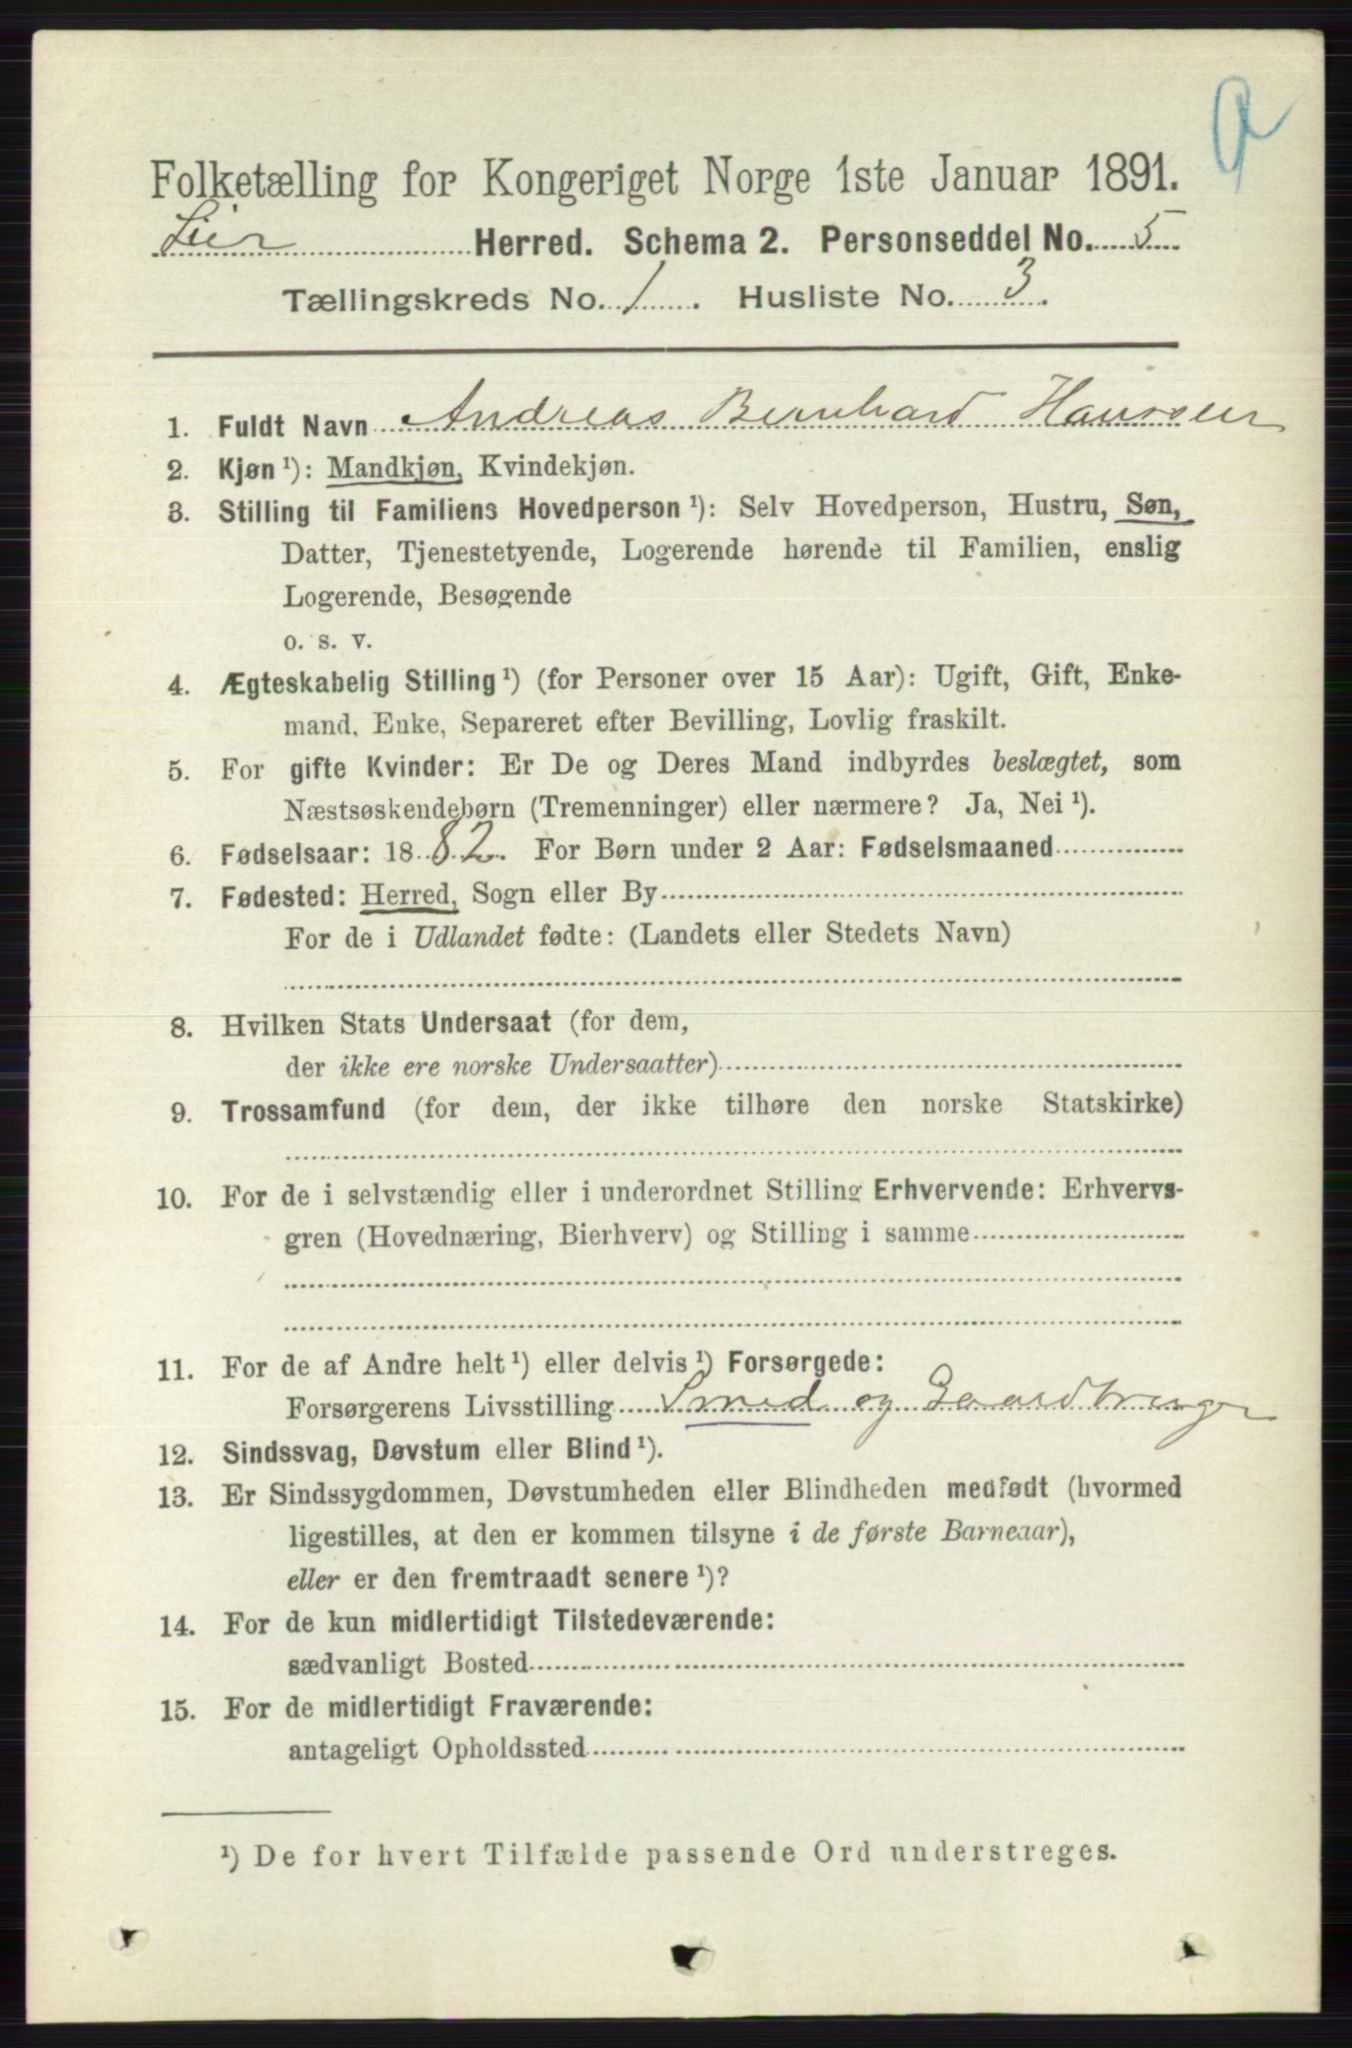 Folketælling for Kongeriget Norge 1ste Januar 1891.
Lier Herred. Schema 2. Personseddel No. 5
Tællingskreds No. 1. Husliste No. 3.
1. Fuldt Navn Andreas Bernhard Hanssen
2. Kjøn ¹): Mandkjøn, Kvindekjøn.
3. Stilling til Familiens Hovedperson ¹): Selv Hovedperson, Hustru, Søn,
Datter, Tjenestetyende, Logerende hørende til Familien, enslig
Logerende, Besøgende
o. s. v.
4. Ægteskabelig Stilling ¹) (for Personer over 15 Aar): Ugift, Gift, Enke-
mand, Enke, Separeret efter Bevilling, Lovlig fraskilt.
5. For gifte Kvinder: Er De og Deres Mand indbyrdes beslægtet, som
Næstsøskendebørn (Tremenninger) eller nærmere? Ja, Nei ¹).
6. Fødselsaar: 1882. For Børn under 2 Aar: Fødselsmaaned
7. Fødested: Herred, Sogn eller By
For de i Udlandet fødte: (Landets eller Stedets Navn)
8. Hvilken Stats Undersaat (for dem,
der ikke ere norske Undersaatter)
9. Trossamfund (for dem, der ikke tilhøre den norske Statskirke)
10. For de i selvstændig eller i underordnet Stilling Erhvervende: Erhvervs-
gren (Hovednæring, Bierhverv) og Stilling i samme
11. For de af Andre helt ¹) eller delvis ¹) Forsørgede:
Forsørgerens Livsstilling Smed og Gaardbruger
12. Sindssvag, Døvstum eller Blind ¹).
13. Er Sindssygdommen, Døvstumheden eller Blindheden medfødt (hvormed
ligestilles, at den er kommen tilsyne i de første Barneaar),
eller er den fremtraadt senere ¹)?
14. For de kun midlertidigt Tilstedeværende:
sædvanligt Bosted
15. For de midlertidigt Fraværende:
antageligt Opholdssted
¹) De for hvert Tilfælde passende Ord understreges.